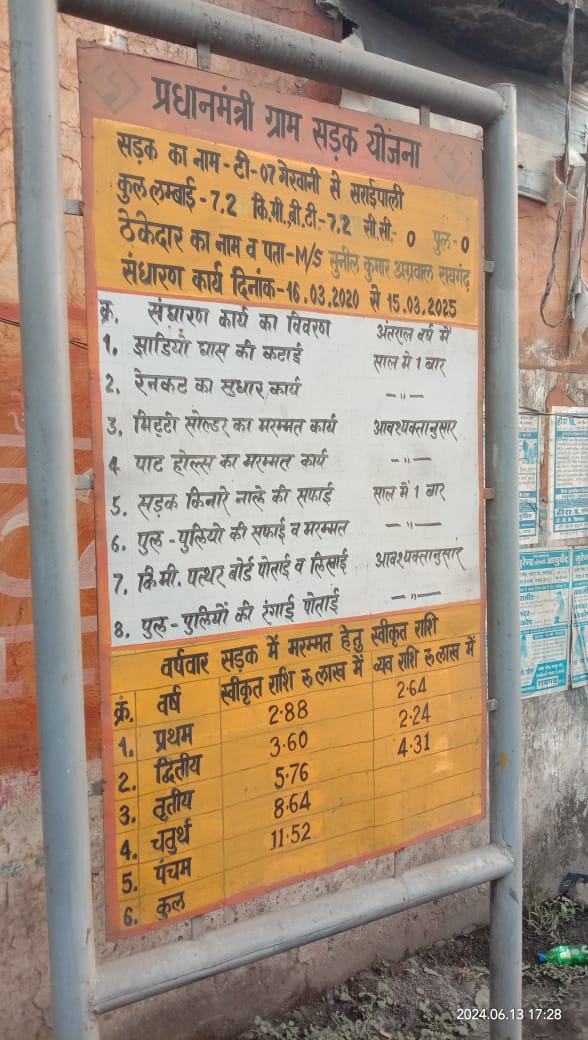 प्रधानमंत्री ग्राम सड़क योजना
सड़क का नाम - टी-07 गेरवानी से सराईपाली
कुल लम्बाई - 7.2 कि.मी.,बी.टी.- 7.2 सी.सी.- 0 पुल - 0
ठेकेदार का नाम व पता - M/S सुनील कुमार अग्रवाल रायगढ़
संधारण कार्य दिनांक - 16.03.2020 से 15.03.2025
क्र. संधारण कार्य का विवरण अंतराल वर्ष में
1. झाडियो घास की कटाई साल मे 1 बार
2. रेनकट का सुधार कार्य -"-
3. मिट्टी सोल्डर का मरम्मत कार्य आवश्यक्तानुसार
4 पाट होल्स का मरम्मत कार्य -"-
5. सड़क किनारे नाले की सफाई साल में 1 बार
6. पुल - पुलियो की सफाई व मरम्मत -"-
7. कि.मी. पत्थर बोर्ड पोताई व लिखाई आवश्यक्तानुसार
8. पुल - पुलियों की रंगाई पोताई -"-
वर्षवार सड़क में मरम्मत हेतु स्वीकृत राशि
क्रं. वर्ष स्वीकृत राशि रु लाख में व्यव राशि रु लाख में
1. प्रथम 2.88 2.64
2. द्वितीय 3.60 2.24
3. तृतीय 5.76 4.31
4. चतुर्थ 8.64
5. पंचम 11.52
6. कुल
2024.06.13 17:28